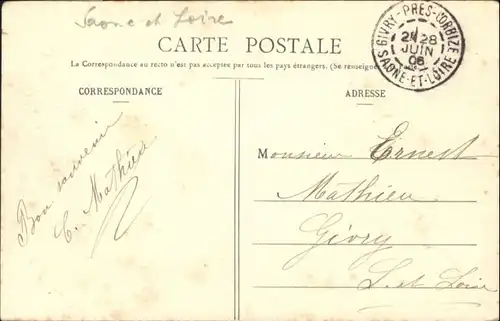 Saone et Loire
CARTE POSTALE
La Correspondance au recto n'est pas acceptée par tous les pays étrangers. (Se renseigner
CORRESPONDANCE
ADRESSE
GIVRY-PRÈS-L'ORBIZE
28
JUIN
08
SAONE-ET-LOIRE
Bon souvenir
C. Mathieu
Monsieur Ernest
Mathieu
Givry
S. et Loire